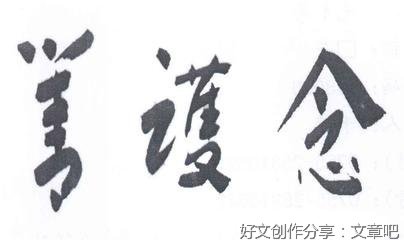 善護念
好文创作分享：文章吧